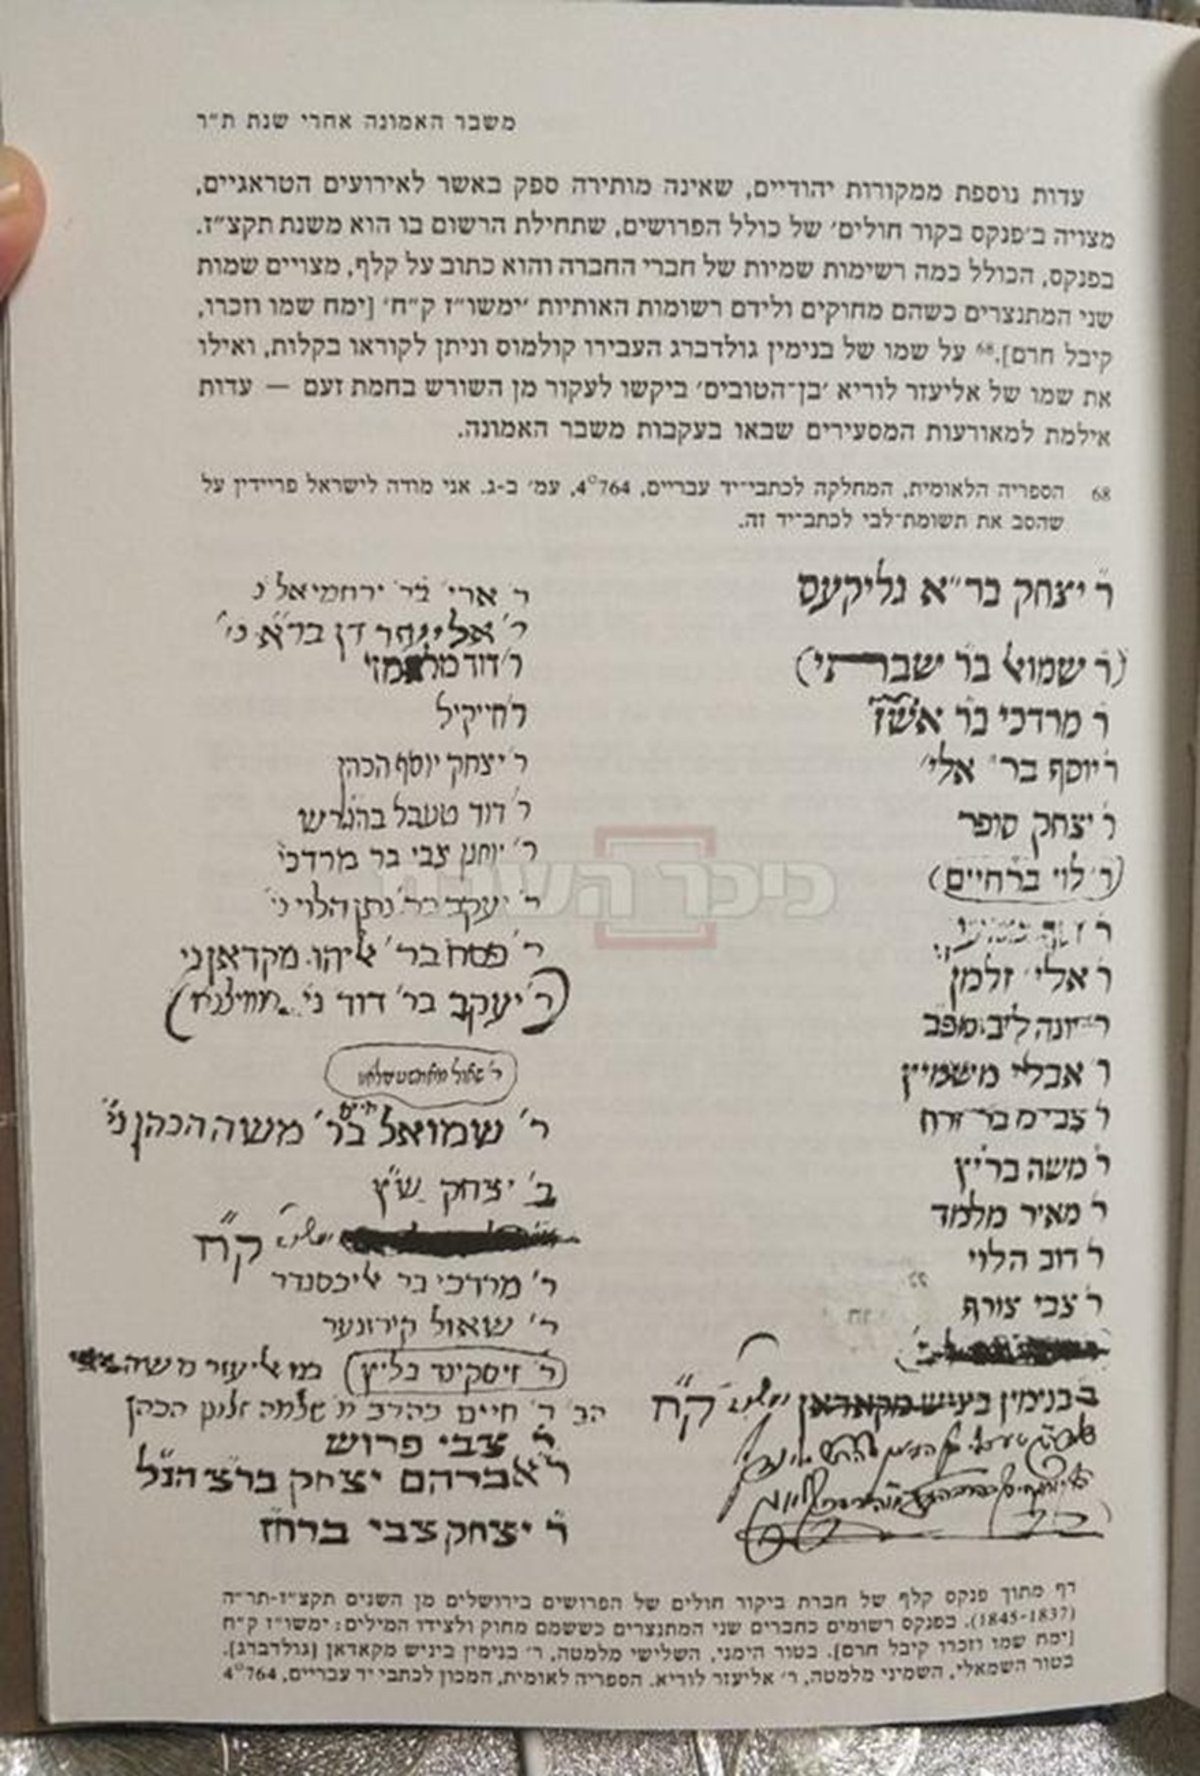 משבר האמונה אחרי שנת ת״ר
עדות נוספת ממקורות יהודיים, שאינה מותירה ספק באשר לאירועים הטראגיים,
מצויה ב׳פנקס בקור חולים׳ של כולל הפרושים, שתחילת הרשום בו הוא משנת תקצ״ז.
בפנקס, הכולל כמה רשימות שמיות של חברי החברה והוא כתוב על קלף, מצויים שמות
שני המתנצרים כשהם מחוקים ולידם רשומות האותיות ׳ימשו״ז ק״ח׳ [ימח שמו וזכרו,
קיבל חרם].68 על שמו של בנימין גולדברג העבירו קולמוס וניתן לקוראו בקלות, ואילו
את שמו של אליעזר לוריא ׳בן־הטובים׳ ביקשו לעקור מן השורש בחמת זעם — עדות
אילמת למאורעות המסעירים שבאו בעקבות משבר האמונה.
68 הספריה הלאומית, המחלקה לכתבי־יד עבריים, 4°764, עמ׳ ב-ג. אני מודה לישראל פריידין על
שהסב את תשומת־לבי לכתב־יד זה.
ר׳ יצחק בר״א גליקעס
(ר׳ שמואל בר׳ שברתי)
ר׳ מרדכי בר
ר׳ יוסף בר׳ אלי׳
ר׳ יצחק סופר
(ר׳ לוי בר׳ חיים)
ר׳ אלי׳ זלמן
ר׳ יונה ליב
ר׳ אבלי משמין
ר׳ צבי
ר׳ משה
ר׳ מאיר מלמד
ר׳ דוב הלוי
ר׳ צבי צורף
בנימין בעניש מקאדאן ק״ח
ר׳ ארי׳ בר׳ ירחמיאל נ׳
ר׳ דוד
ר׳ חייקיל
ר׳ יצחק יוסף הכהן
ר׳ דוד טעבל
ר׳ יוחנן צבי בר מרדכי
ר׳ יעקב בר׳ נתן הלוי ני׳
ר׳ פסח בר׳ אליהו מקדאן ני׳
(ר׳ יעקב בר׳ דוד ני׳
ר׳ שאול
ר׳ שמואל חיים בר׳ משה הכהן ני׳
ב׳ יצחק ש״ץ
ק״ח
ר׳ מרדכי בר אליכסנדר
ר׳ שאול קירזנער
(ר׳ זיסקינד בליץ) אליעזר משה
ר׳ חיים שלמה זלמן הכהן
ר׳ צבי פרוש
ר׳ אברהם יצחק הנ״ל
ר׳ יצחק צבי
כיכר השבת
דף מתוך פנקס קלף של חברת ביקור חולים של הפרושים בירושלים מן השנים תקצ״ז-תר״ה
(1845-1837). בפנקס רשומים כחברים שני המתנצרים כששמם מחוק ולצידו המילים: ימשו״ז ק״ח
[ימח שמו וזכרו קיבל חרם]. בטור הימני, השלישי מלמטה, ר׳ בנימין ביניש מקאדאן [גולדברג].
בטור השמאלי, השמיני מלמטה, ר׳ אליעזר לוריא. הספריה לאומית, המכון לכתבי יד עבריים, 4°764